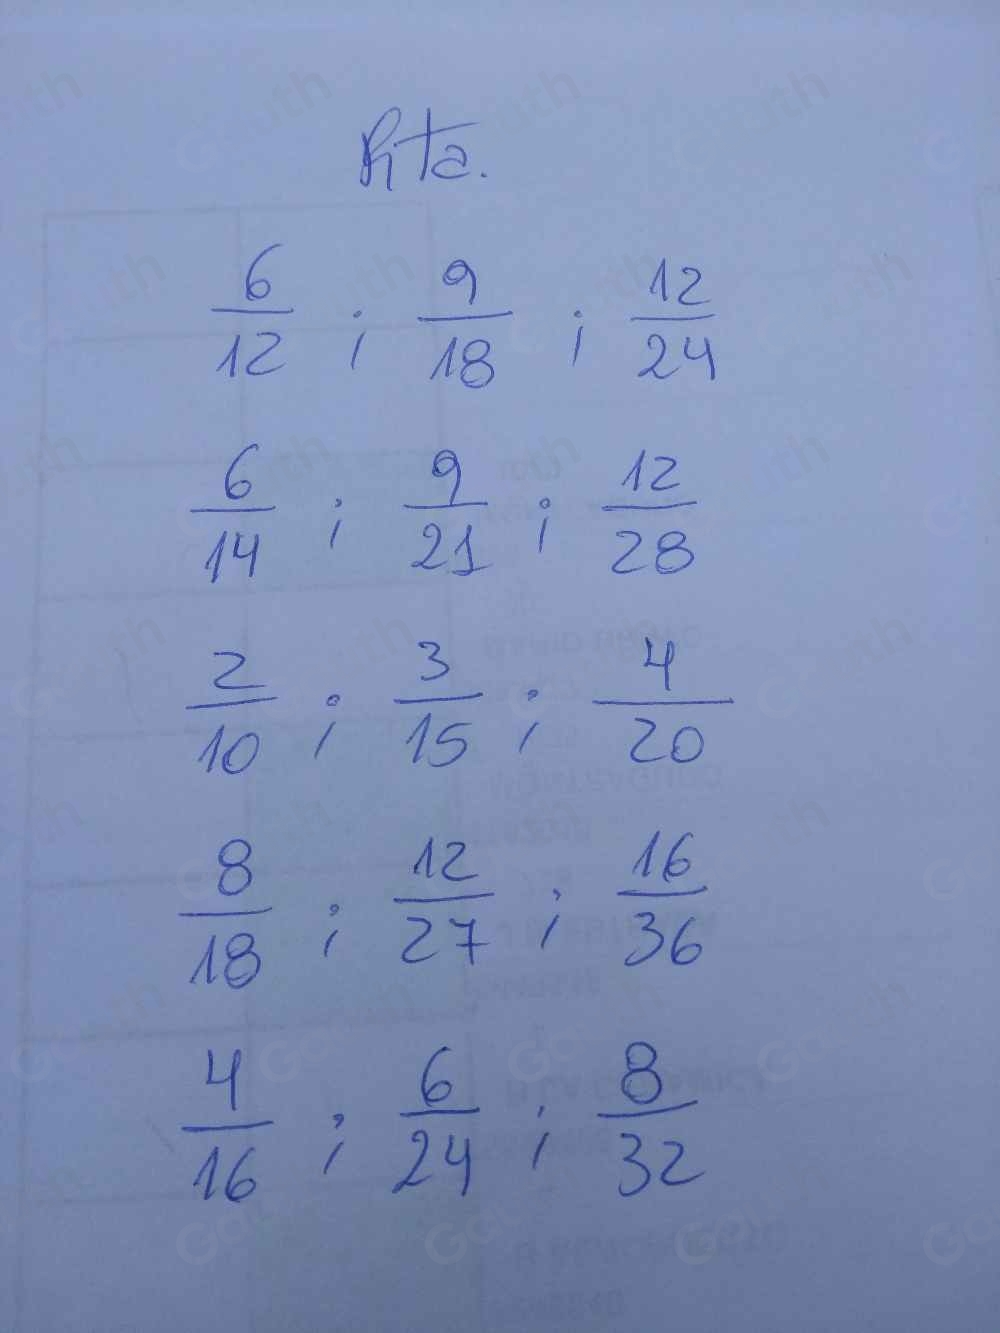 Rta.
6/12 ; 9/18 ; 12/24
6/14 ; 9/21 ; 12/28
2/10 ; 3/15 ; 4/20
8/18 ; 12/27 ; 16/36
4/16 ; 6/24 ; 8/32